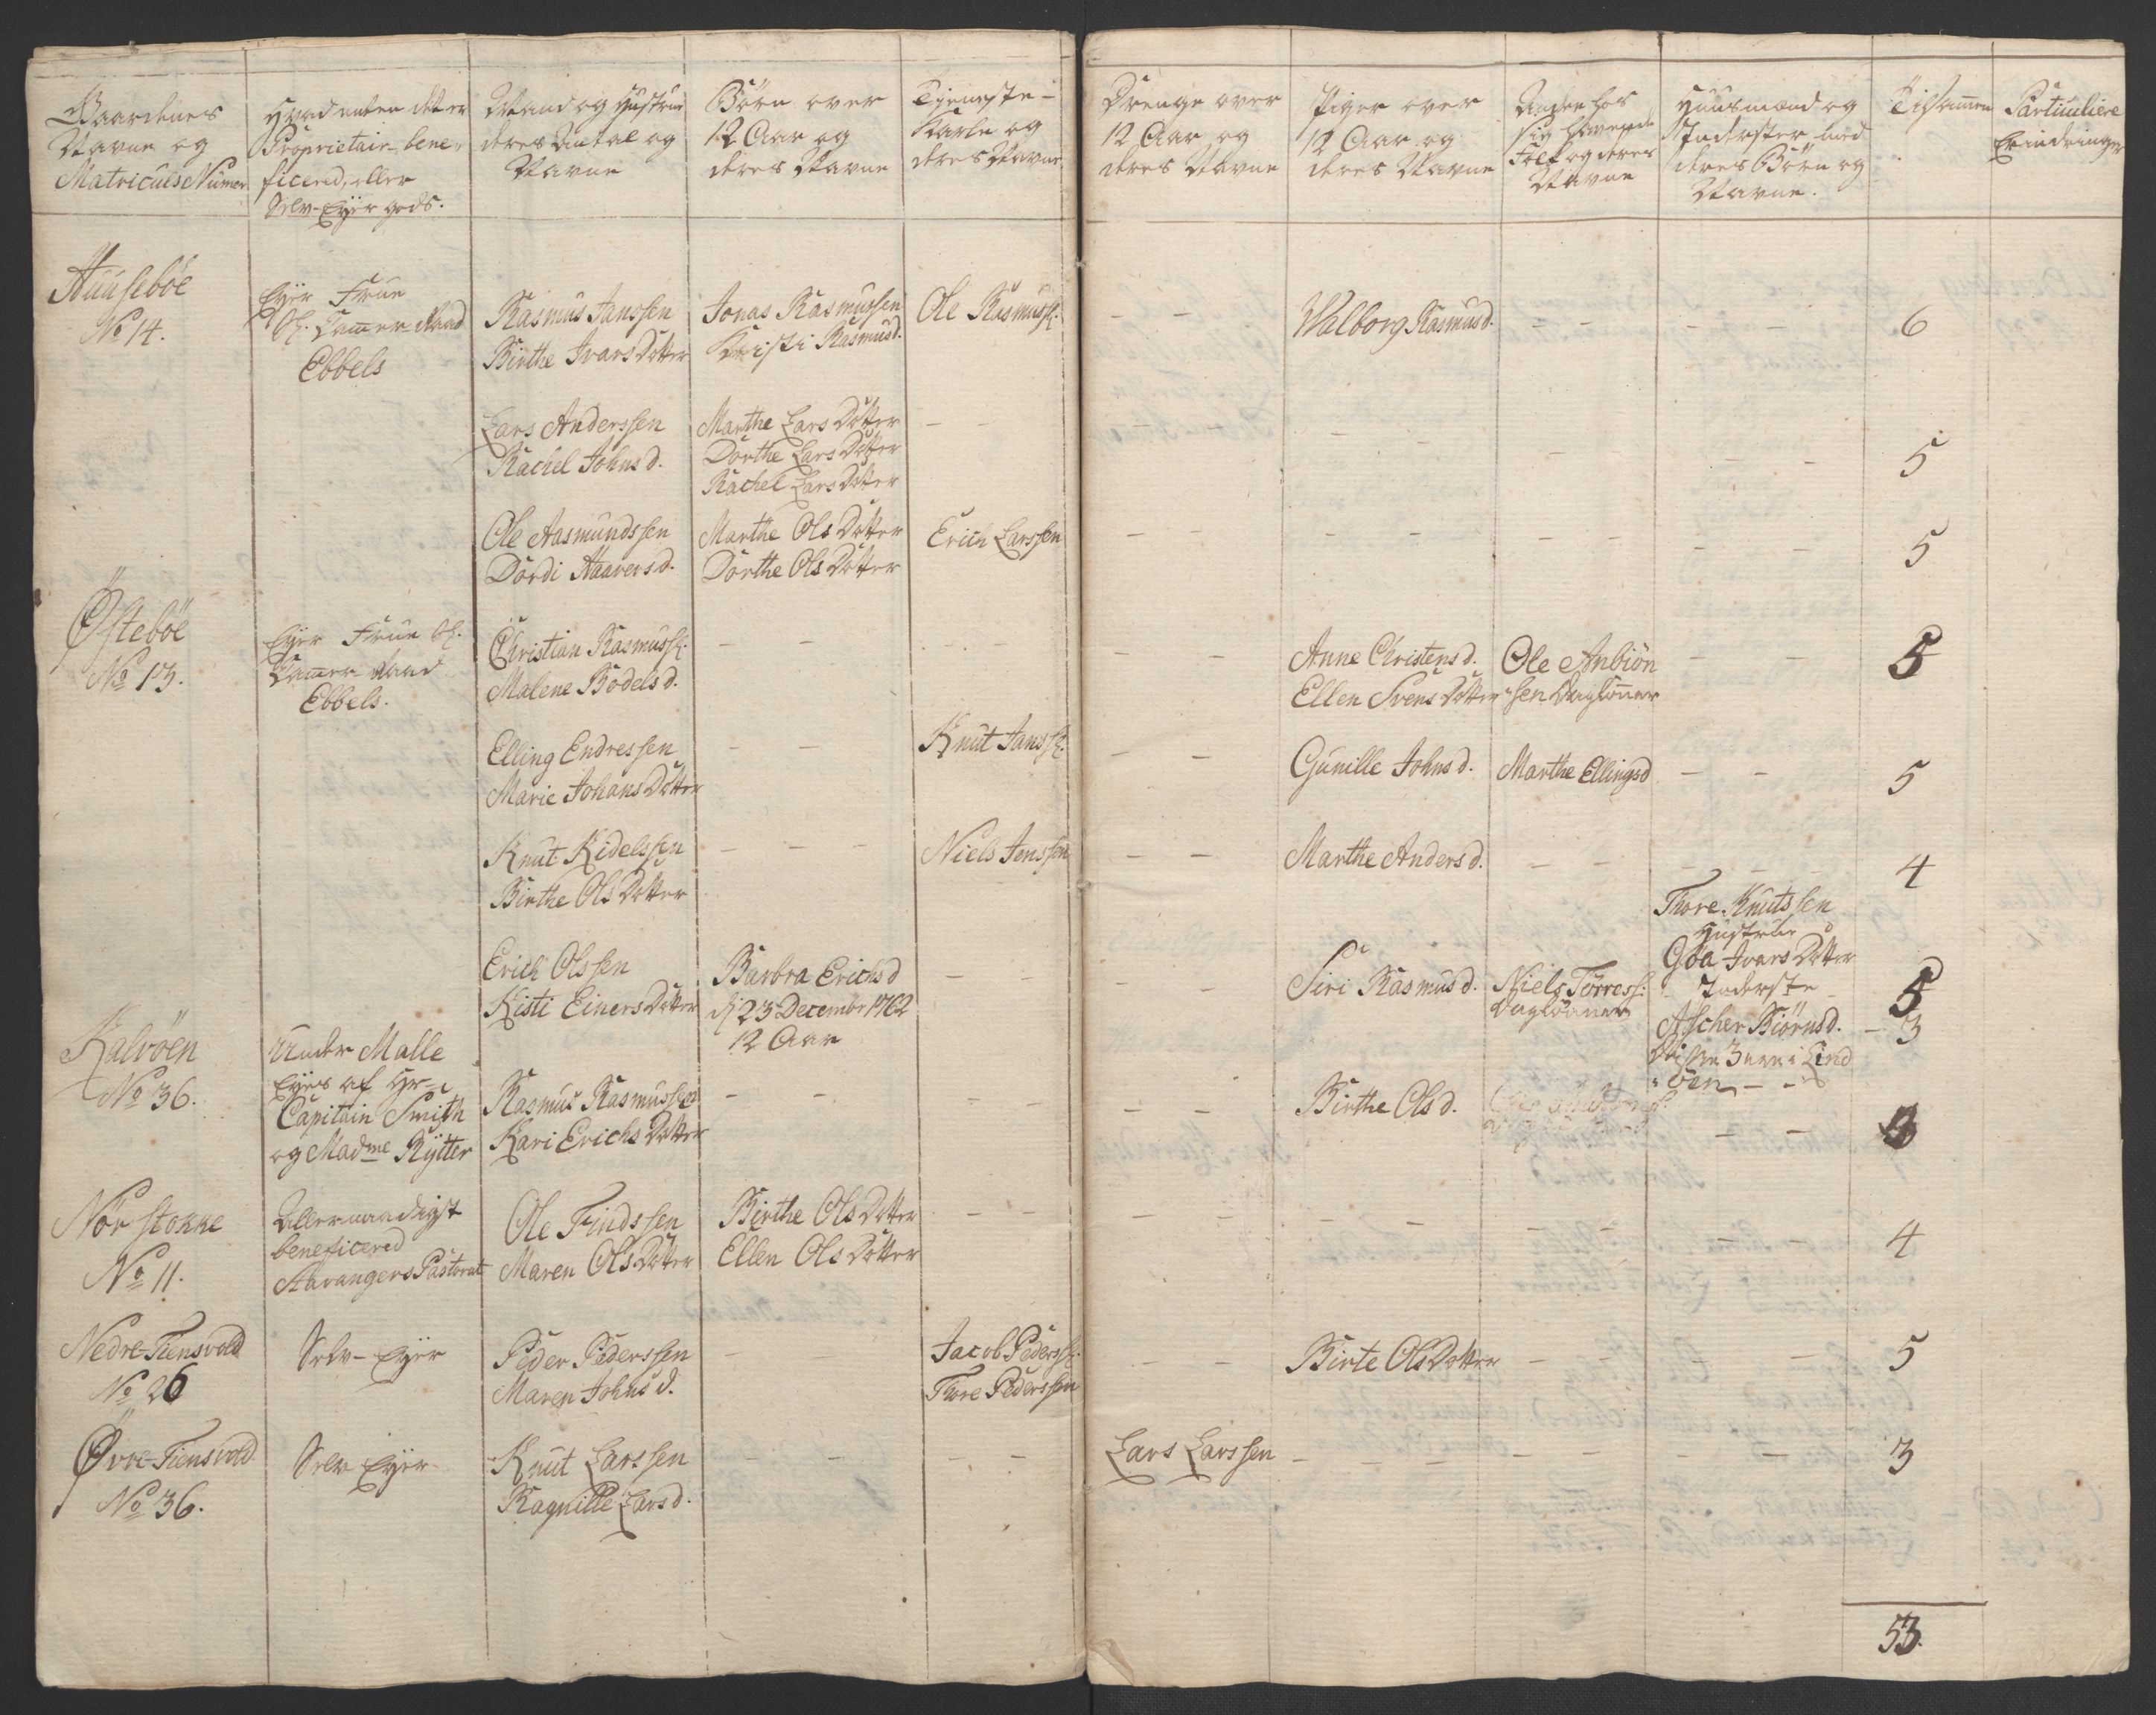 Gaardenes
Navne og
Matriculs Numer
Hvad enten det er
Proprietair- bene-
ficered, eller
Selv-Eyer gods.
Mand og Hustrue
deres Antal og
Navne
Börn over
12 Aar og
deres Navne
Tieneste-
Karle og
deres Navne
Drenge over
12 Aar og
deres Navne
Piger over
12 Aar og
deres Navne
hos
sig havende
Folk og deres
Navne
Huusmænd og
Inderster med
deres Börn og
Navne.
Tilsamen
Particuliere
Erindringer
Huuseböe
No 14.
Eyer Frue
Sl. Camer-Raad
Ebbels
Rasmus Janssen
Birthe Ivars Dotter
Jonas Rasmussen
Kristi Rasmusd.
Ole Rasmuss:
Walborg Rasmusd.
6
Lars Anderssen
Rachel Johnsd.
Marthe Lars Dotter
Dorthe Lars Dotter
Rachel Lars Dotter
5
Ole Aasmundssen
Dordi Haaversd.
Marthe Ols Dotter
Dorthe Ols Dotter
Erich Larssen
5
Östeböe
No 13.
Eyer Frue Sl.
Camer-Raad
Ebbels.
Christian Rasmuss:
Malene Bodelsd.
Anne Christensd.
Ellen Svens Dotter
Ole Anbiön
sen Daglönner
5
Elling Endressen
Marie Johans Dotter
Knut Janss:
Gunille Johnsd.
Marthe Ellingsd
5
Knut Kidelssen
Birthe Ols Dotter
Niels Jenssen
Marthe Andersd.
4
Erich Olssen
Kisti Einers Dotter
Barbra Erichsd
d 23 Decembr 1762
12 Aar
Siri Rasmusd.
Niels Törress:
Daglönner
Thore Knutssen
Hustrue
Göa Ivars Dotter
Inderste
Ascher Biörnsd.
Disse 3 ere i Lind
öen
5
3
Kalvöen
No 36.
Under Malle
Eyes af Hr.
Capitain Smith
og Madme Rytter
Rasmus Rasmussen
Kari Erichs Dotter
Birthe Olsd.
3
Nörstokke
No 11.
Allernaadigst
beneficered
Stavangers Pastorat
Ole Findssen
Maren Ols Dotter
Birthe Ols Dotter
Ellen Ols Dotter
4
Nedre-Tiensvold
No 26
Selv-Eyer
Peder Pederssen
Maren Johnsd.
Jacob Peders:
Thore Pederssen
Birte Ols Dotter
5
Övre-Tiensvold
No 36.
Selv Eyer
Knut Larssen
Ragnille Larsd.
Lars Larssen
3
53.